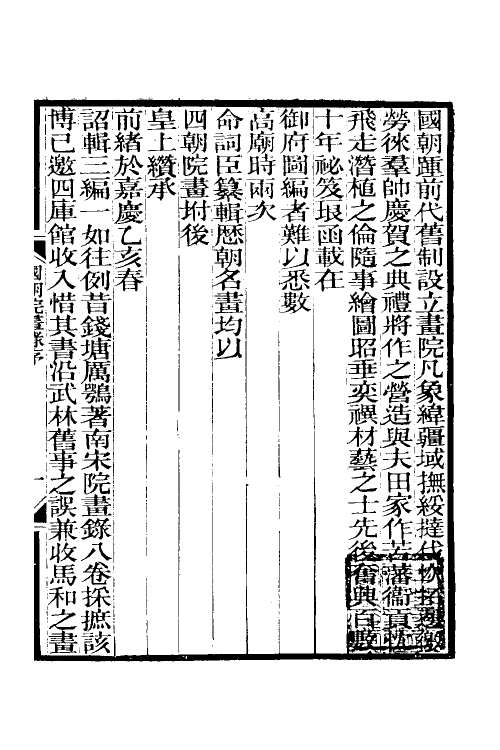 國朝踵前代舊制設立畫院凡象緯疆域撫綏撻伐
勞徠羣帥慶賀之典禮將作之營造與夫田家作苦藩衞貢
飛走潛植之倫隨事繪圖昭垂奕禩材藝之士先後奮興百數
十年祕笈琅函載在
御府圖編者難以悉數
高廟時兩次
命詞臣纂輯歷朝名畫均以
四朝院畫坿後
皇上纘承
前緒於嘉慶乙亥春
詔輯三編一如往例昔錢塘厲鶚著南宋院畫錄八卷採摭該
博已邀四庫館收入惜其書沿武林舊事之誤兼收馬和之畫
國朝院畫錄序
一